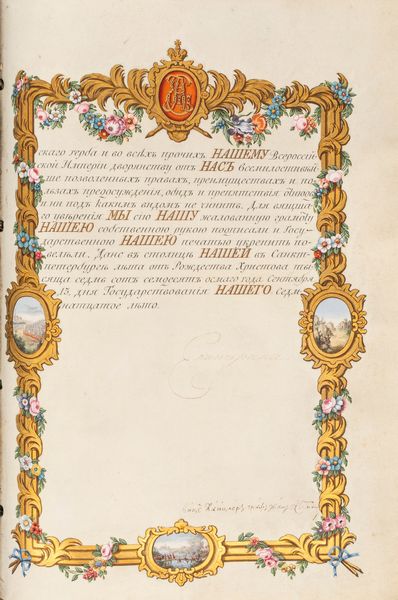 скаго герба и во всѣхъ прочихъ НАШЕМУ Всероссій
ской Имперіи дворянству отъ НАСЪ Всемилостивѣй
ше позволенныхъ правахъ, преимуществахъ и по
льзахъ предосужденія, обидъ и препятствія
ни подъ какимъ видомъ не чинить. Для вящша
го увѣренія МЫ сію НАШУ жалованную грамоту
НАШЕЮ собственною рукою подписали и Госу
дарственною НАШЕЮ печатью укрепить по
велѣли. Дане въ столицѣ НАШЕЙ въ Санкт
петербургѣ лѣта отъ Рождества Христова ты
сяща седмь сотъ семдесятъ осмаго года Сентября
13, дня Государствованія НАШЕГО седм
наꙗтцатое лѣто.
Екатерина